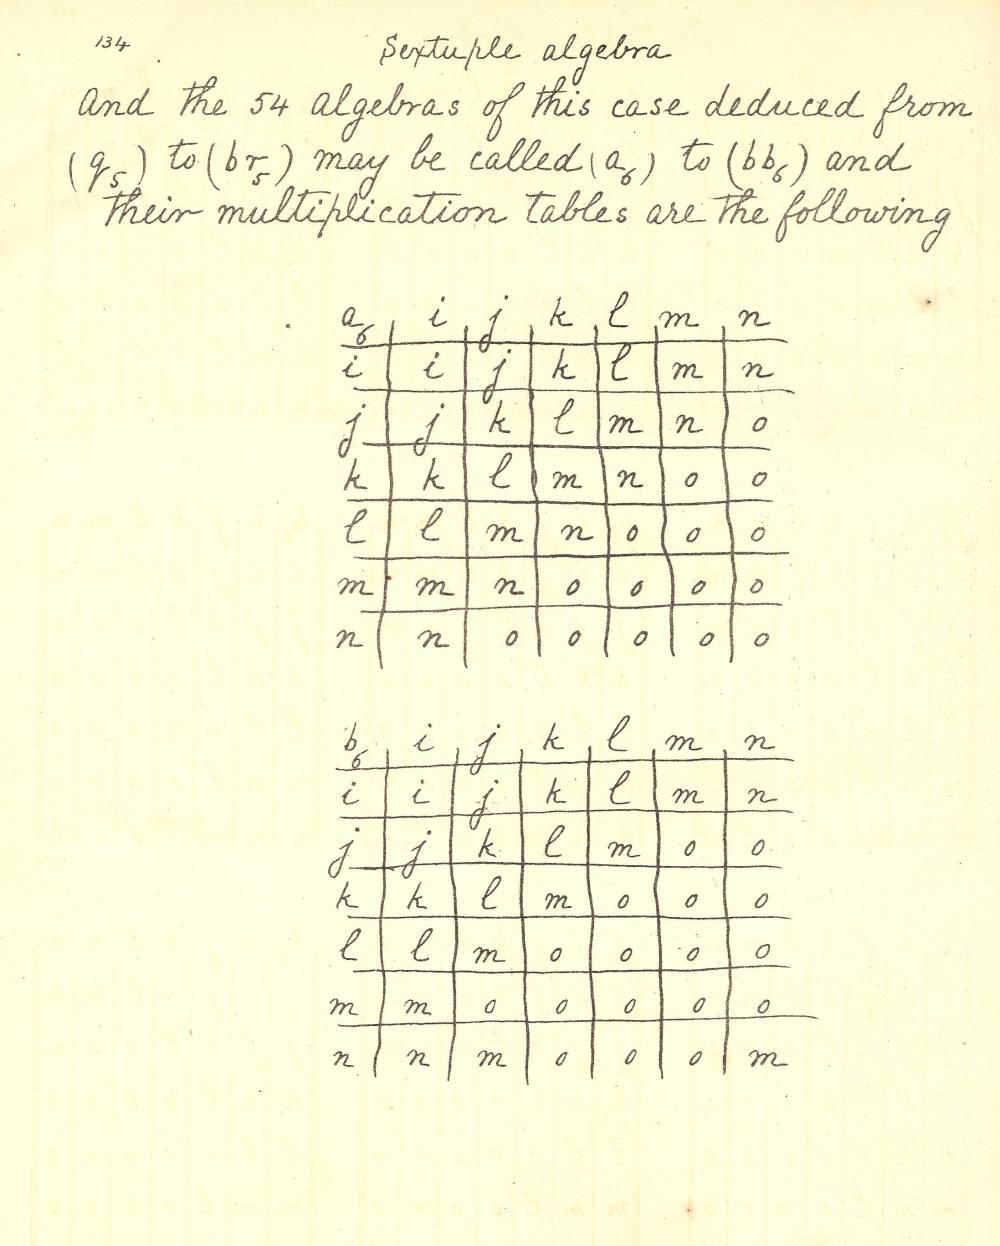 134
Sextuple algebra
and the 54 algebras of this case deduced from
(q₅) to (br₅) may be called (a₆) to (bb₆) and
their multiplication tables are the following
a₆ i j k l m n
i i j k l m n
j j k l m n o
k k l m n o o
l l m n o o o
m m n o o o o
n n o o o o o
b₆ i j k l m n
i i j k l m n
j j k l m o o
k k l m o o o
l l m o o o o
m m o o o o o
n n m o o o m